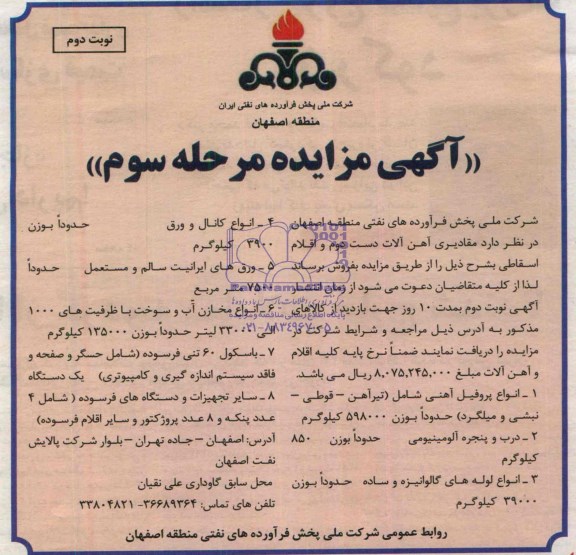 نوبت دوم
شرکت ملی پخش فرآورده های نفتی ایران
منطقه اصفهان
«آگهی مزایده مرحله سوم»
شرکت ملـی پخش فـرآورده های نفتی منطقـه اصفهان
در نظـر دارد مقادیـری آهـن آلات دسـت دوم و اقلام
اسـقاطی بشـرح ذیـل را از طریـق مزایده بفروش برسـاند
لـذا از کلیـه متقاضیـان دعوت می شـود از زمان انتشـار
آگهـی نوبـت دوم بمدت ۱۰ روز جهت بازدید از کالاهای
مذکـور به آدرس ذیـل مراجعه و شـرایط شـرکت در
مزایـده را دریافـت نماینـد ضمنـاً نرخ پایـه کلیـه اقلام
و آهـن آلات مبلغ ۸,۰۷۵,۲۴۵,۰۰۰ ریـال مـی باشـد.
۱ ـ انواع پروفیل آهنـی شامل (تیرآهـن – قوطـی –
نبشـی و میلگـرد) حدوداً بـوزن ۵۹۸۰۰۰ کیلوگـرم
۲ ـ درب و پنجره آلومینیومی حدوداً بوزن ۸۵۰
کیلوگرم
۳ ـ انـواع لوله هـای گالوانیـزه و سـاده حدوداً بوزن
۳۹۰۰۰ کیلوگرم
۴ ـ انـواع کانـال و ورق حدوداً بـوزن
۳۹۰۰ کیلوگـرم
۵ ـ ورق هـای ایرانیـت سـالم و مسـتعمل حدوداً
۷۵۰۰ متـر مربـع
۶ ـ انـواع مخـازن آب و سـوخت بـا ظرفیـت هـای ۱۰۰۰
الـی ۳۳۰۰۰ لیتـر حدوداً بـوزن ۱۳۵۰۰۰ کیلوگرم
۷ ـ باسـکول ۶۰ تنی فرسـوده (شـامل حسگر و صفحـه و
فاقـد سیسـتم انـدازه گیـری و کامپیوتـری) یـک دسـتگاه
۸ ـ سـایر تجهیـزات و دسـتگاه هـای فرسـوده ( شـامل ۴
عدد پنکـه و ۸ عدد پروژکتـور و سـایر اقلام فرسـوده)
آدرس: اصفهان – جاده تهران – بلوار شرکت پالایش
نفت اصفهان
محل سابق گاوداری علی نقیان
تلفن های تماس: ۳۶۶۸۹۳۶۴- ۳۳۸۰۴۸۲۱
روابط عمومی شرکت ملی پخش فرآورده های نفتی منطقه اصفهان
پایگاه اطلاع رسانی مناقصه و مزایده
۰۲۱-۸۸۳۴۹۶۷۰-۵